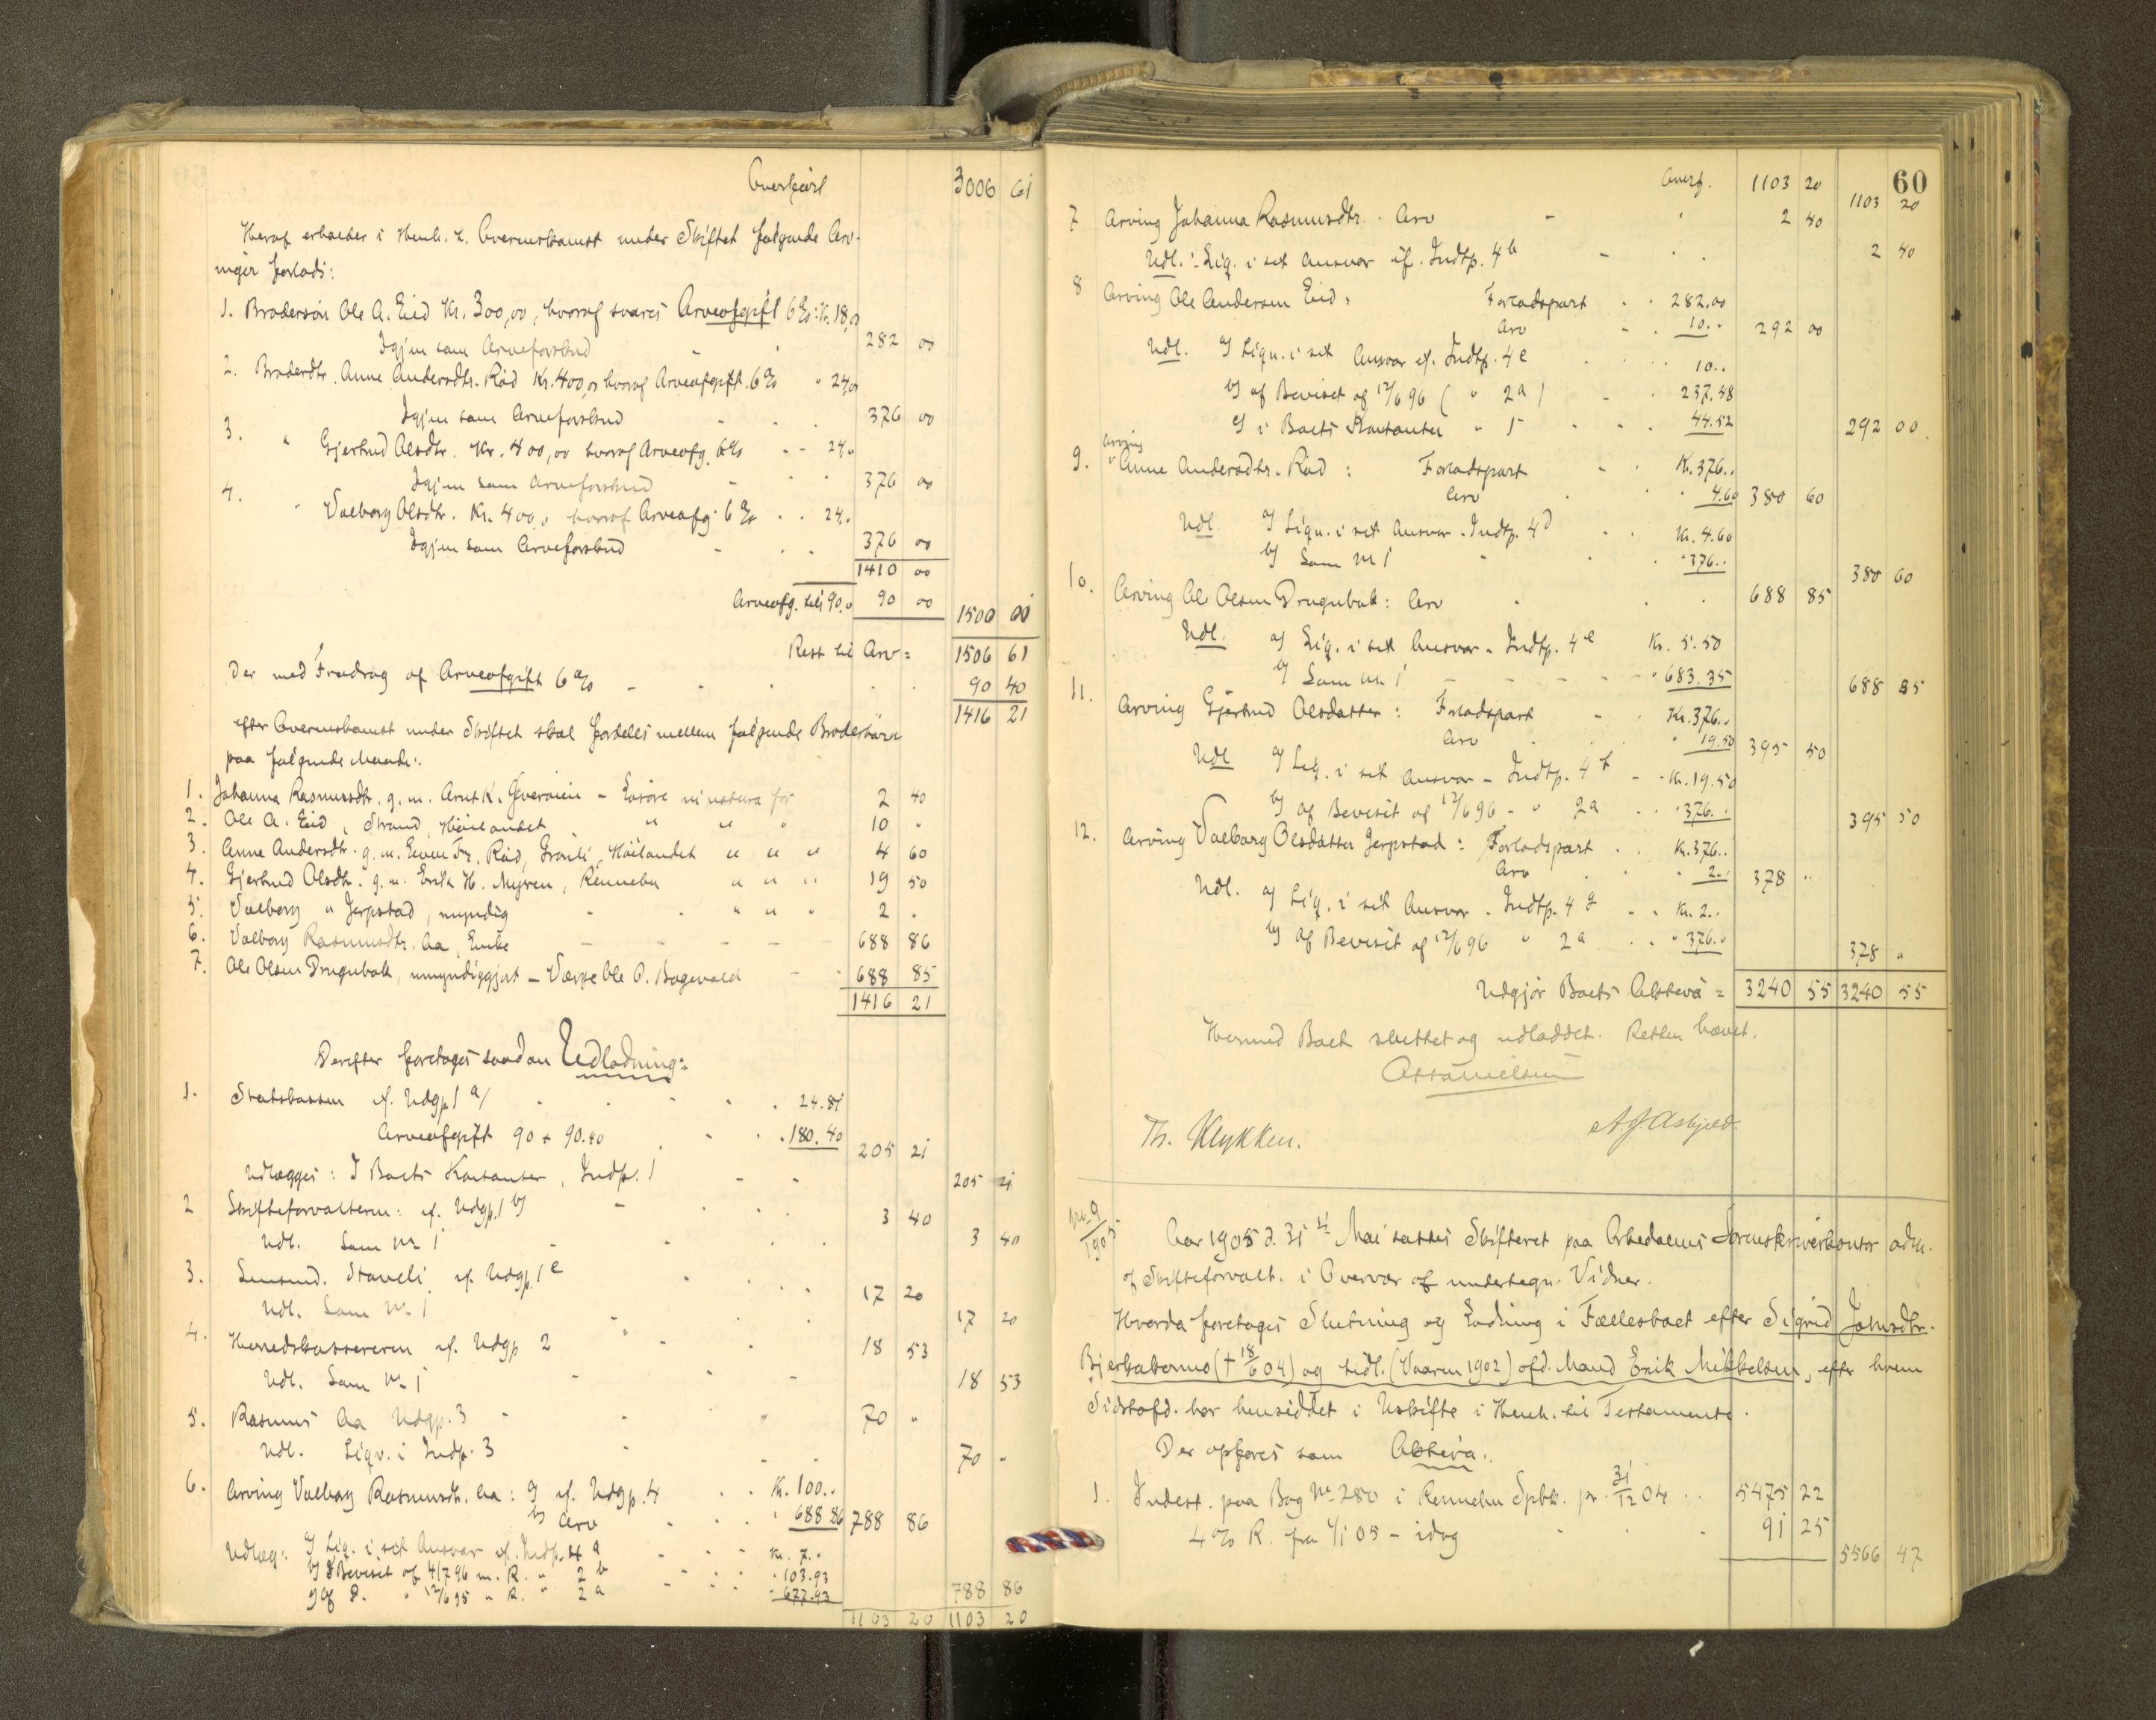 Overført 3006 61
Heraf erholder i Henh. t. Overenskomst under Skiftet følgende Arv-
inger forlods:
1. Brodersøn Ole A. Eid Kr. 300,00, hvoraf svares Arveafgift 6%: Kr. 18,00
Igjen som Arveforskud 282 00
2. Broderdtr. Anne Andersdtr. Råd Kr. 400,00 hvoraf Arveafgift 6% " 24,00
Igjen som Arveforskud 376 00
3. " Gjertrud Olsdtr. Kr. 400,00 hvoraf Arveafg. 6% - - 24,"
Igjen som Arveforskud 376 00
4. " Valborg Olsdtr. Kr. 400,0 hvoraf Arveafg. 6% . . 24,"
Igjen som Arveforskud 376 00
1410 00
Arveafg. til 90,0 90 00 1500 00
Rest til Arv = 1506 61
Der med Fradrag af Arveafgift 6% - 90 40
1416 21
efter Overenskomst under Skiftet skal fordeles mellem følgende Broderbørn
paa følgende Maade:
1. Johanna Rasmusdtr. g. m. Arnt K. - in natura for 2 40
2. Ole A. Eid, Strand, Høilandet " " " 10 "
3. Anne Andersdtr. g. m. Even Fr. Råd, Grønli, Høilandet " " " 4 60
4. Gjertrud Olsdtr. g. m. Erik H. Myren, Rennebu " " " 19 50
5. Valborg " Jerpstad, myndig - . " " " 2 .
6. Valborg Rasmusdtr. Aa, Enke - - - - 688 86
7. Ole Olsen Drugubak, umyndiggjort - Værge Ole O. Bagevold - 688 85
1416 21
Derefter foretages saadan Udlodning:
1. Statskassen cf. Udgp. 1 a/ 24.81
Arveafgift 90 + 90.40 180.40 205 21
Udlægges: I Boets Kontanter, Indp. 1 - - 205 21
2 Skifteforvalteren: cf. Udgp. 1 b/ - 3 40
Udl. Som No 1 3 40
3. Lensmd. Staveli cf. Udgp. 1 c 17 20
Udl. Som No 1 17 20
4. Herredskassereren cf. Udgp 2 18 53
Udl. Som No 1 18 53
5. Rasmus Aa Udgp. 3 70 "
Udl. Liqv. i Indp. 3 70 "
6. Arving Valborg Rasmusdtr. Aa: a/ cf. Udgp. 4 Kr. 100..
b/ Arv " 688 86 788 86
Udlæg: a/ Liq. i sit Ansvar cf. Indtp. 4 a Kr. 7.."
b/ I Beviset af 4/7 96 m. R. " 2 b " 103.93
c/ af D. " 12/6 95 " R. " 2 a " 677.93 788 86
1103 20 1103 20
60
Overf. 1103 20 1103 20
7 Arving Johanna Rasmusdtr. Arv - " 2 40
Udl.: Liq. i sit Ansvar cf. Indtp. 4 b - 2 40
8 Arving Ole Andersen Eid: Forlodspart . . 282.00
Arv - . 10.. 292 00
Udl. a/ Liqv. i sit Ansvar cf. Indtp. 4 c 10..
b/ af Beviset af 12/6 96 ( " 2 a ) - 237.48
c/ i Boets Kontanter " 1 - 44.52 292 00
9. Arving Anne Andersdtr. Råd: Forlodspart - Kr. 376..
Arv " 4.60 380 60
Udl. a/ Liqv. i sit Ansvar - Indtp. 4 d . . Kr. 4.60
b/ Som No 1 " " 376.. 380 60
10. Arving Ole Olsen Drugubak: Arv . . 688 85
Udl. a/ Liq. i sit Ansvar - Indtp. 4 e Kr. 5.50
b/ Som No 1 - - - - " 683.35 688 85
11. Arving Gjertrud Olsdatter: Forlodspart - Kr. 376..
Arv " 19.50 395 50
Udl a/ Liq. i sit Ansvar - Indtp. 4 f - - Kr. 19.50
b/ af Beviset af 12/6 96 - " 2 a . . " 376.. 395 50
12. Arving Valborg Olsdatter Jerpstad: Forlodspart . . Kr. 376..
Arv " 2.. 378 "
Udl. a/ Liq. i sit Ansvar - Indtp. 4 g - . Kr. 2..
b/ af Beviset af 12/6 96 " 2 a . . " 376.. 378 "
Udgjør Boets Aktiva = 3240 55 3240 55
Hermed Boet sluttet og udloddet. Retten hævet.
Th. Klykken. A J Asbjeld.
No 9/1905
Aar 1905 d. 31te Mai sattes Skifteret paa Orkedalens Sorenskriverkontor adm.
af Skifteforvalt. i Overvær af undertegn. Vidner.
Hvorda foretoges Slutning og Lodning i Fællesboet efter Sigrid Johnsdtr.
Bjerkakermo († 18/6 04) og tidl. (Vaaren 1902) afd. Mand Erik Mikkelsen, efter hvem
Sidstafd. har hensiddet i Uskifte i Henh. til Testamente.
Der opføres som Aktiva:
1. Indest. paa Bog No 280 i Rennebu Spbk. pr. 31/12 04 . . 5475 22
4% R. fra 1/1 05 - idag 91 25 5566 47